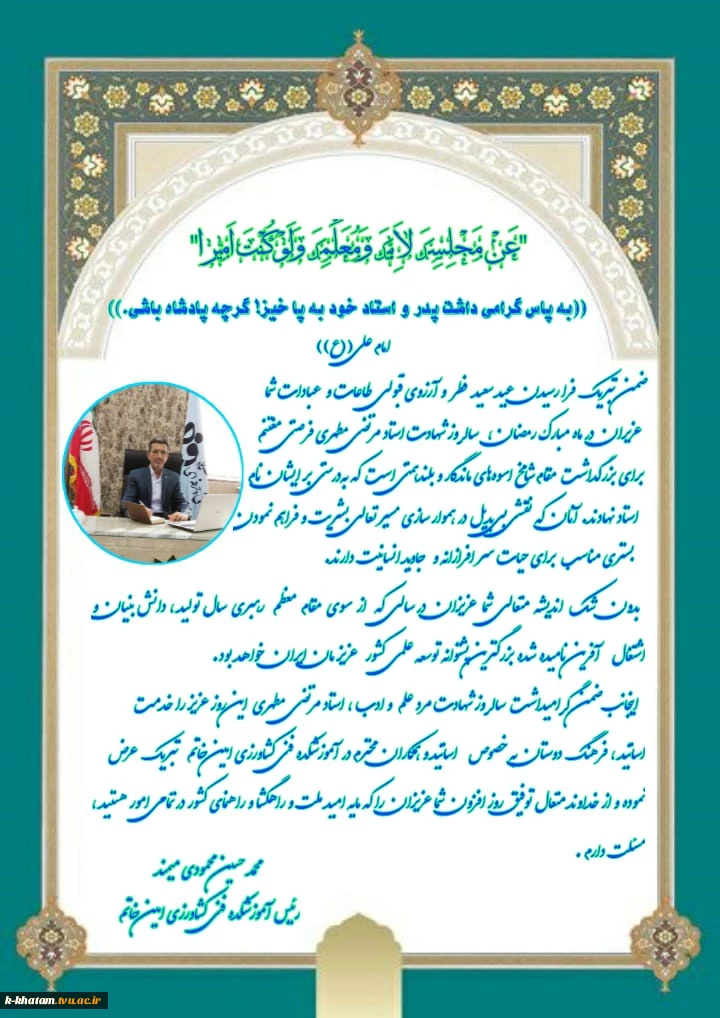 "عَنْ مَجْلِسِكَ لِأَبِيكَ وَمُعَلِّمِكَ وَلَوْ كُنْتَ أَمِيرًا"
((به پاس گرامی داشت پدر و استاد خود به پا خیز! گرچه پادشاه باشی.))
امام علی ((ع))
ضمن تبریک فرا رسیدن عید سعید فطر و آرزوی قبولی طاعات و عبادات شما
عزیزان در ماه مبارک رمضان سالروز شهادت استاد مرتضی مطهری فرصتی مغتنم
برای بزرگداشت مقام شامخ اسوه‌های ماندگار و بلند همتی است که به درستی بر ایشان نام
استاد نهادند. آنان که نقشی بی‌بدیل در هموار سازی مسیر تعالی بشریت و فراهم نمودن
بستری مناسب برای حیات سرافرازانه و جاوید انسانیت دارند.
بدون شک اندیشه متعالی شما عزیزان در سالی که از سوی مقام معظم رهبری سال تولید، دانش بنیان و
اشتغال آفرین نامیده شده بزرگترین پشتوانه توسعه علمی کشور عزیزمان ایران خواهد بود.
اینجانب ضمن گرامیداشت سالروز شهادت مرد علم و ادب، استاد مرتضی مطهری این روز عزیز را خدمت
اساتید، فرهنگ دوستان به خصوص اساتید و همکاران محترم در آموزشکده فنی کشاورزی امین خاتم تبریک عرض
نموده و از خداوند متعال توفیق روز افزون شما عزیزان را که مایه امید ملت و راهگشا و راهنمای کشور در تمامی امور هستید،
مسئلت دارم.
محمد حسین محمودی میمند
رئیس آموزشکده فنی کشاورزی امین خاتم
k-khatam.tvu.ac.ir